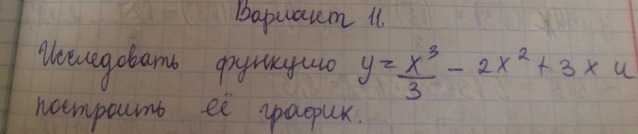 Вариант 11.
Исследовать функцию y = x³/3 - 2x² + 3x и
построить её график.